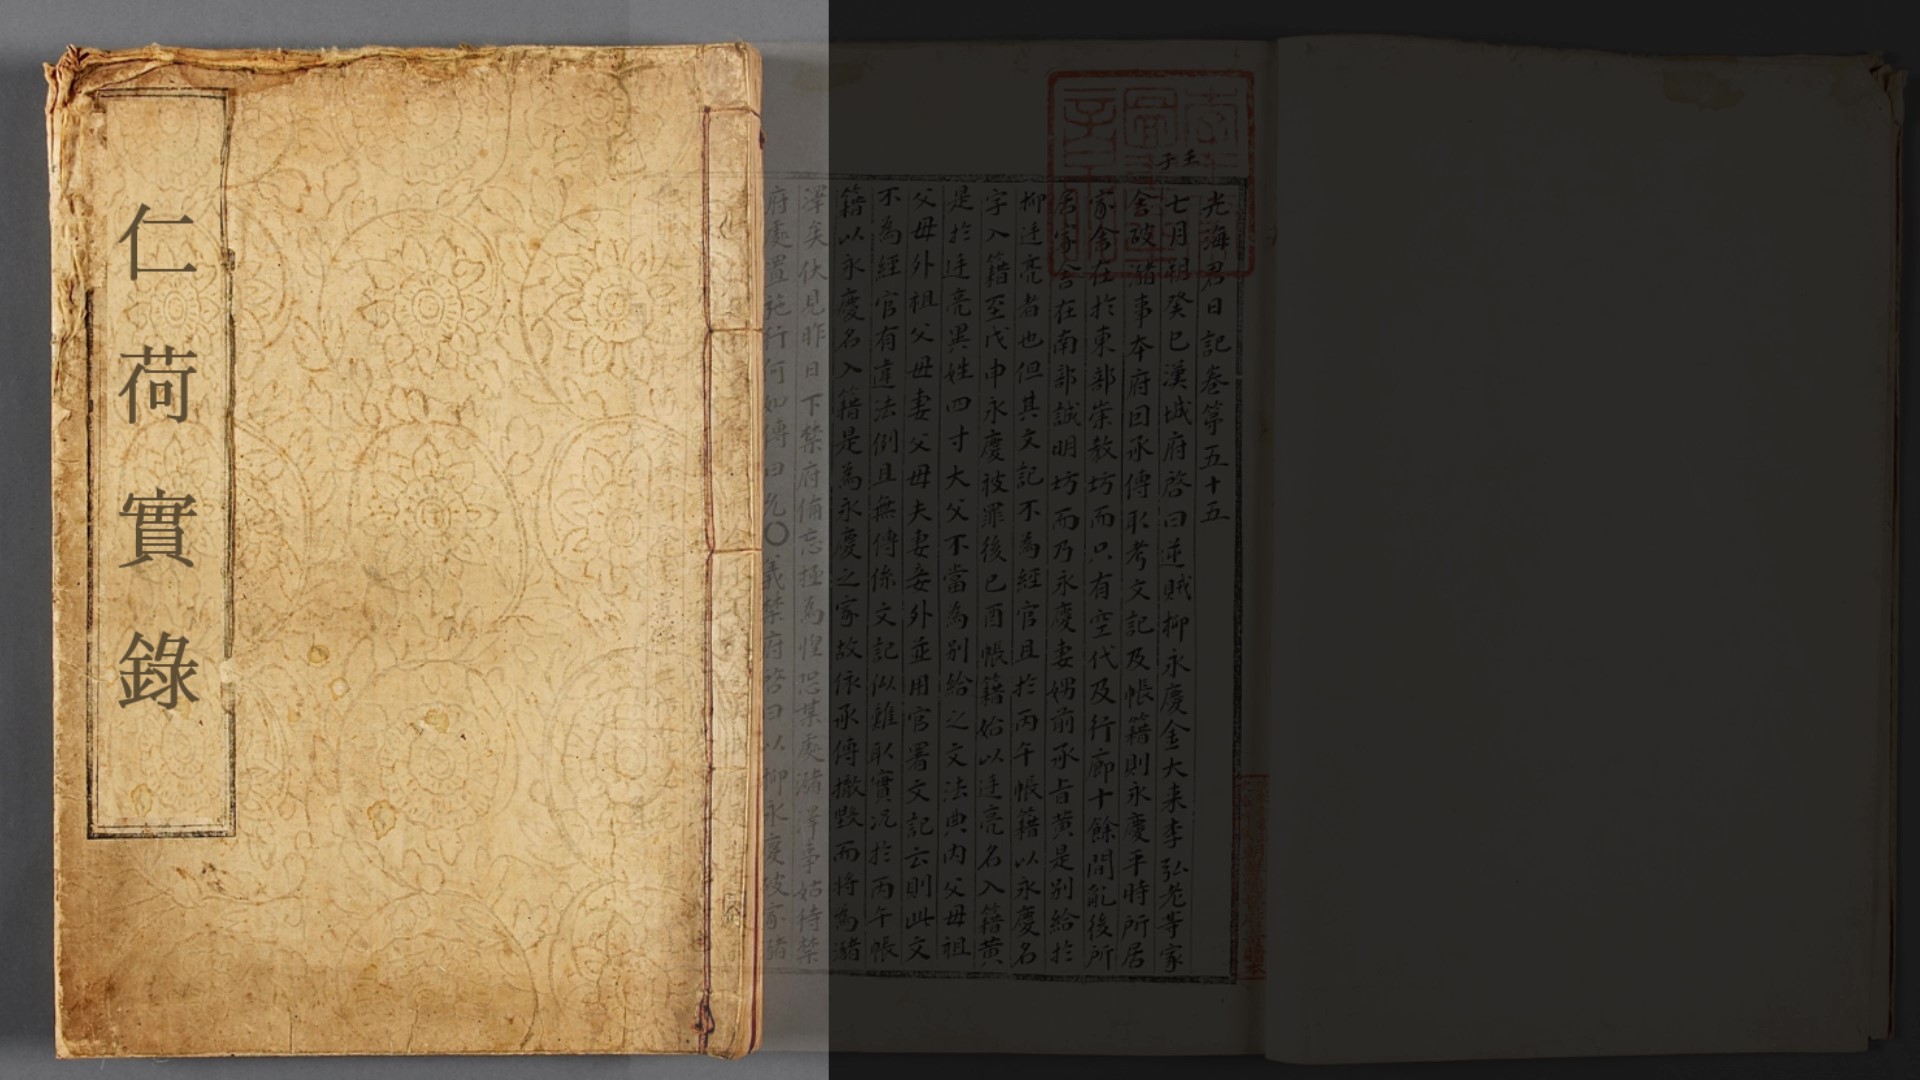 仁荷實錄
壬子
光海君日記卷第五十五
七月朔癸巳漢城府啓曰逆賊柳永慶金大来李弘老等家
舍破瀦事本府因承傳取考文記及帳籍則永慶平時所居
家舍在於東部崇教坊而只有空代及行廊十餘間亂後所
居家舍在南部誠明坊而乃永慶妻娚前承旨黄是別給於
柳廷亮者也但其文記不為經官且於丙午帳籍以永慶名
字入籍至戊申永慶被罪後己酉帳籍始以廷亮名入籍黄
是於廷亮異姓四寸大父不當為別給之文法典內父母祖
父母外祖父母妻父母夫妻妾外並用官署文記云則此文
不為經官有違法例且無傳係文記似難取實況於丙午帳
籍以永慶名入籍是為永慶之家故依承傳撤毀而將為瀦
澤矣伏見昨日下禁府備忘極為惶恐某處瀦澤事姑待禁
府處置施行何如傳曰允○義禁府啓曰以柳永慶破家瀦